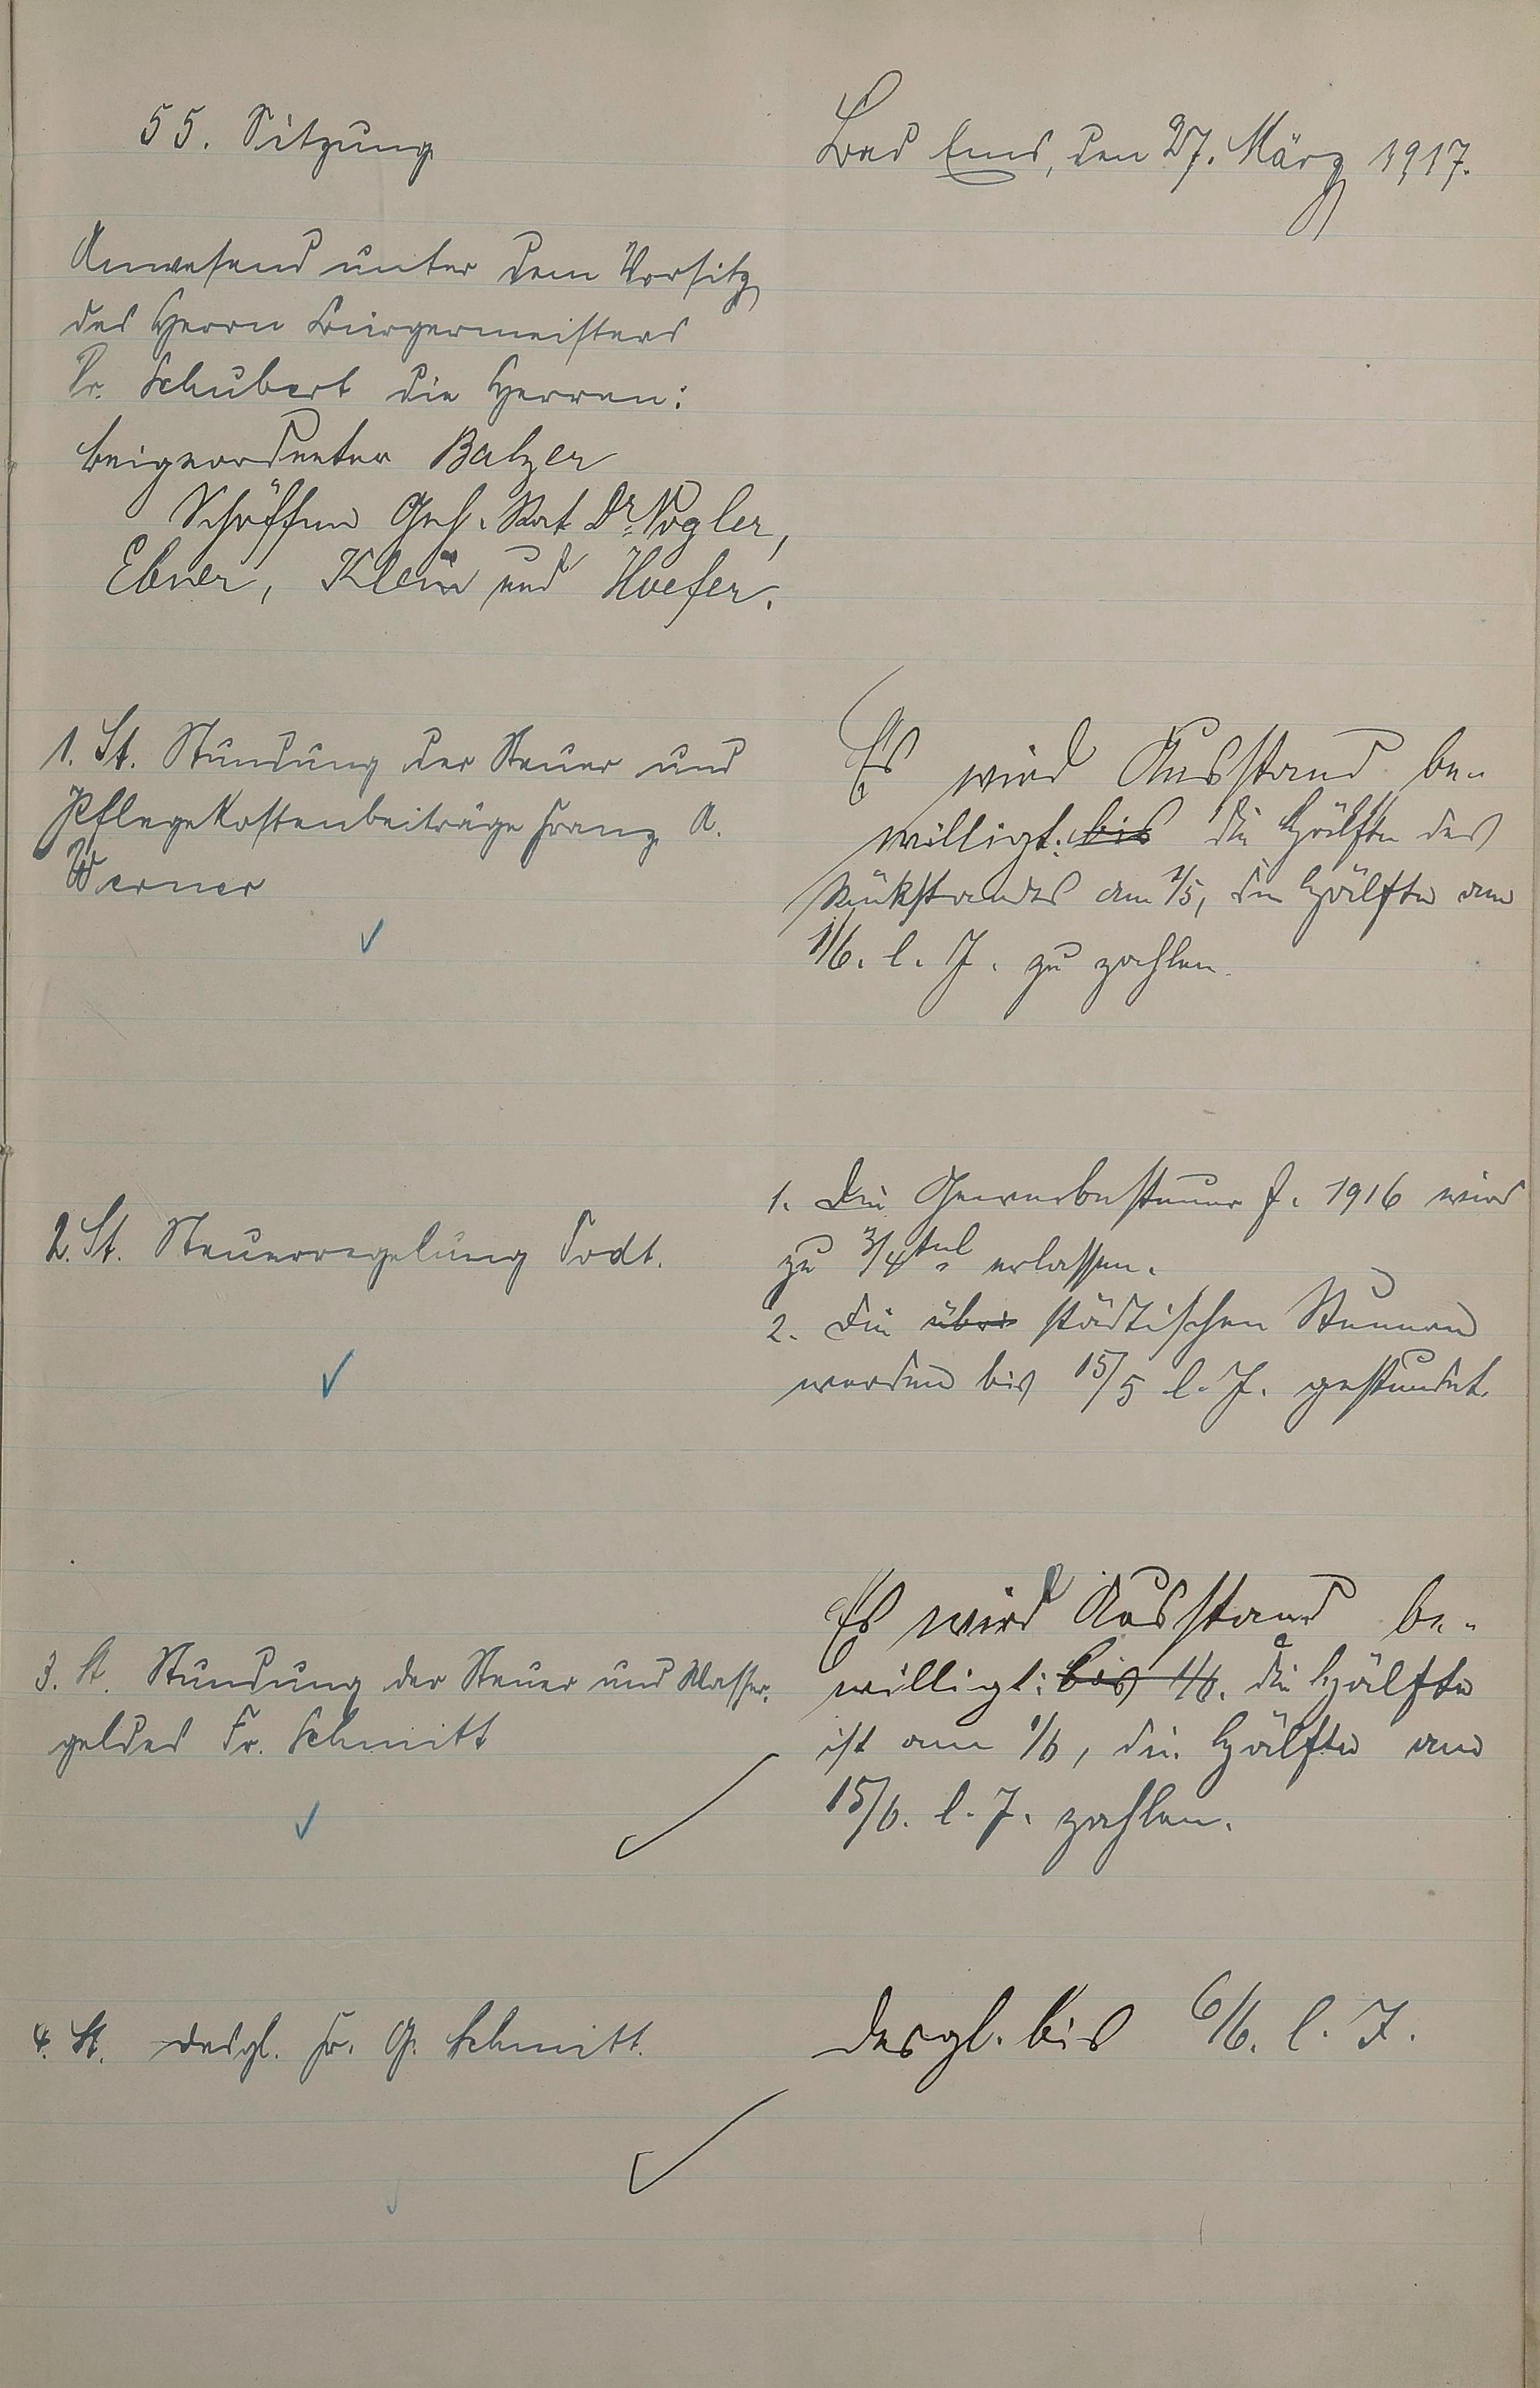 55. Sitzung
Bad Ems, den 27. März 1917.
Anwesend unter dem Vorsitz
des Herrn Bürgermeisters
Dr. Schubert die Herren:
Beigeordneter Balzer
Schöffen Geh. Rat Dr. Vogler,
Ebner, Klein und Hoefer.
1. St. Stundung der Steuer und
Pflegekostenbeiträge Franz A.
Werner
Es wird Ausstand be-
willigt: bis die Hälfte des
Rückstandes am 1/5, die Hälfte am
1/6. l. J. zu zahlen.
2. St. Steuerregelung Todt.
1. Die Gewerbesteuer f. 1916 wird
zu 3/4tel erlassen.
2. Die übri städtischen Steuern
werden bis 15/5 l. J. gestundet.
3. St. Stundung der Steuer und Wasser-
geldes Fr. Schmitt
Es wird Ausstand be-
willigt: bis 1/6. die Hälfte
ist am 1/6, die Hälfte am
15/6. l. J. zahlen.
4. St. desgl. Fr. G. Schmitt.
desgl. bis 6/6. l. J.